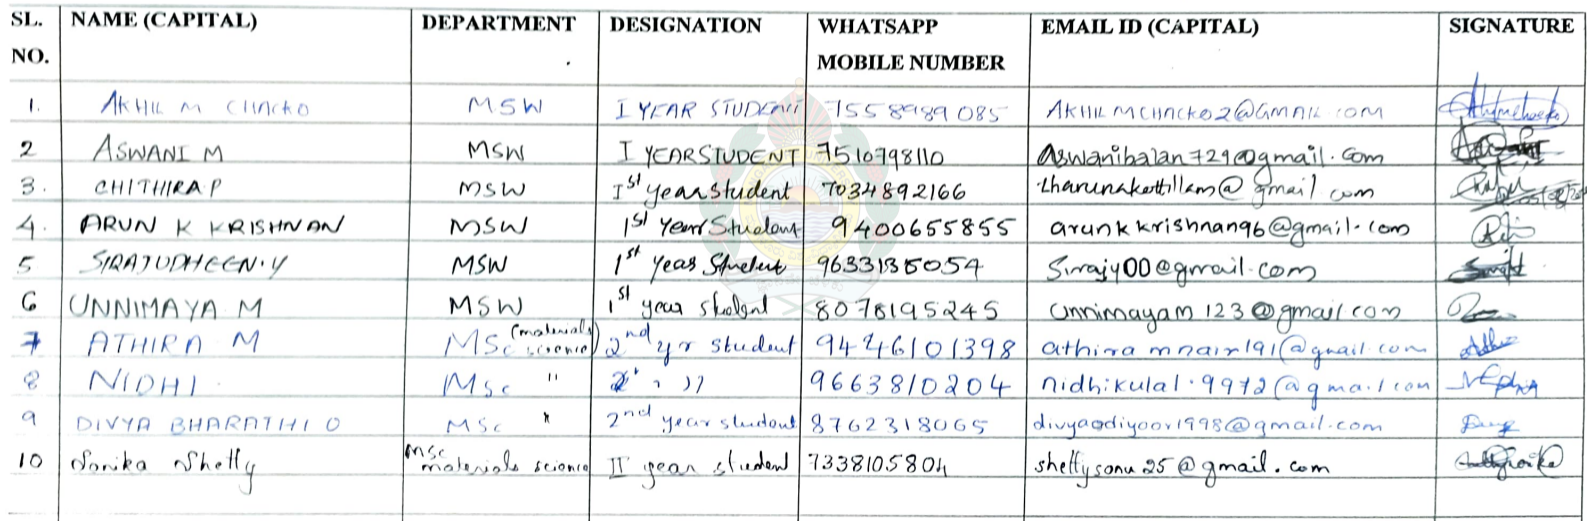 SL. NO. NAME (CAPITAL) DEPARTMENT DESIGNATION WHATSAPP MOBILE NUMBER EMAIL ID (CAPITAL) SIGNATURE
1. AKHIL M CHACKO MSW I YEAR STUDENT 7558989085 AKHILMCHACKO2@GMAIL.COM
2 ASWANI M MSW I YEARSTUDENT 7510798110 aswanibalan729@gmail.com
3. CHITHIRA P MSW Ist year student 7034892166 tharunakottillam@gmail.com
4. ARUN K KRISHNAN MSW 1st Year Student 9400655855 arunkkrishnan96@gmail.com
5 SIRAJUDHEEN.Y MSW 1st Year Student 9633135054 Sirajy00@gmail.com
6 UNNIMAYA M MSW 1st year student 8078195245 unnimayam123@gmail.com
7 ATHIRA M MSc (materials science) 2nd yr student 9446101398 athiramnair191@gmail.com
8 NIDHI MSc " " )) 9663810204 nidhikulal.9972@gmail.com
9 DIVYA BHARATHI O MSc " 2nd year student 8762318065 divyaodiyoor1998@gmail.com
10 Sonika Shetty MSc materials science II year student 7338105804 shettysonu25@gmail.com